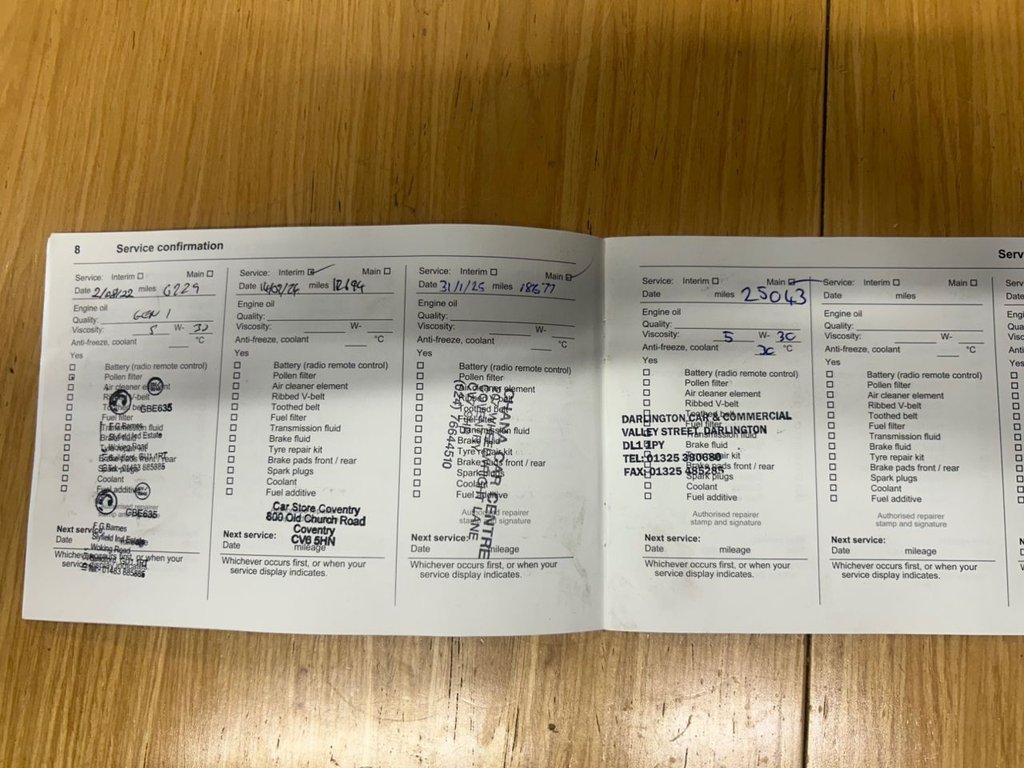 8 Service confirmation
Service: Interim Main
Date 2/08/22 miles 6229
Engine oil
Quality: GEN 1
Viscosity: 5 W- 30
Anti-freeze, coolant °C
Yes
Battery (radio remote control)
Pollen filter
Air cleaner element
Ribbed V-belt
Toothed belt
Fuel filter
Transmission fluid
Brake fluid
Tyre repair kit
Brake pads front / rear
Spark plugs
Coolant
Fuel additive
GBE635
F G Barnes
Slyfield Ind Estate
Woking Road
GU1 1RT
Tel: 01483 885385
GBE635
F G Barnes
Slyfield Ind Estate
Woking Road
Tel: 01483 885385
Next service:
Date
Whichever occurs first, or when your
service display indicates.
Service: Interim Main
Date miles 12694
Engine oil
Quality:
Viscosity: W-
Anti-freeze, coolant °C
Yes
Battery (radio remote control)
Pollen filter
Air cleaner element
Ribbed V-belt
Toothed belt
Fuel filter
Transmission fluid
Brake fluid
Tyre repair kit
Brake pads front / rear
Spark plugs
Coolant
Fuel additive
Car Store Coventry
800 Old Church Road
Coventry
CV6 5HN
Next service:
Date mileage
Whichever occurs first, or when your
service display indicates.
Service: Interim Main
Date 31/1/25 miles 18677
Engine oil
Quality:
Viscosity: W-
Anti-freeze, coolant °C
Yes
Battery (radio remote control)
Pollen filter
Air cleaner element
Ribbed V-belt
Toothed belt
Fuel filter
Transmission fluid
Brake fluid
Tyre repair kit
Brake pads front / rear
Spark plugs
Coolant
Fuel additive
CAR CENTRE
LANE
7664510
Authorised repairer
stamp and signature
Next service:
Date mileage
Whichever occurs first, or when your
service display indicates.
Service: Interim Main
Date miles 25043
Engine oil
Quality:
Viscosity: 5 W- 30
Anti-freeze, coolant 30 °C
Yes
Battery (radio remote control)
Pollen filter
Air cleaner element
Ribbed V-belt
Toothed belt
Fuel filter
Transmission fluid
Brake fluid
Tyre repair kit
Brake pads front / rear
Spark plugs
Coolant
Fuel additive
DARLINGTON CAR & COMMERCIAL
VALLEY STREET, DARLINGTON
DL1 1PY
TEL: 01325 380680
FAX: 01325 485285
Authorised repairer
stamp and signature
Next service:
Date mileage
Whichever occurs first, or when your
service display indicates.
Service: Interim Main
Date miles
Engine oil
Quality:
Viscosity: W-
Anti-freeze, coolant °C
Yes
Battery (radio remote control)
Pollen filter
Air cleaner element
Ribbed V-belt
Toothed belt
Fuel filter
Transmission fluid
Brake fluid
Tyre repair kit
Brake pads front / rear
Spark plugs
Coolant
Fuel additive
Authorised repairer
stamp and signature
Next service:
Date mileage
Whichever occurs first, or when your
service display indicates.